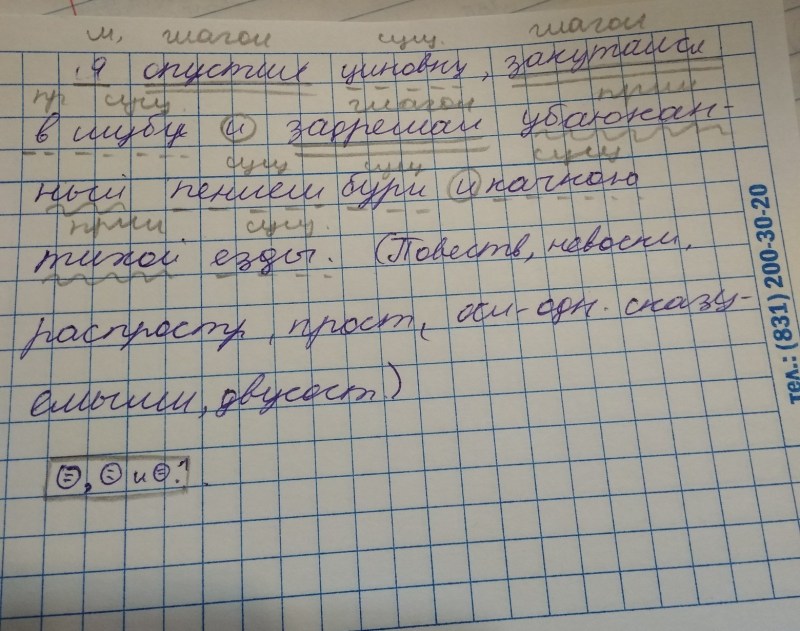 м. глагол сущ. глагол
Я опустил циновку, закутался
пр сущ. глагол прил
в шубу и задремал убаюкан-
сущ сущ сущ
ный пением бури и качкою
прил сущ.
тихой езды. (Повеств, невоскл,
распростр, прост, осл-одн. сказу-
емыми, двусост.)
, и .
тел.: (831) 200-30-20